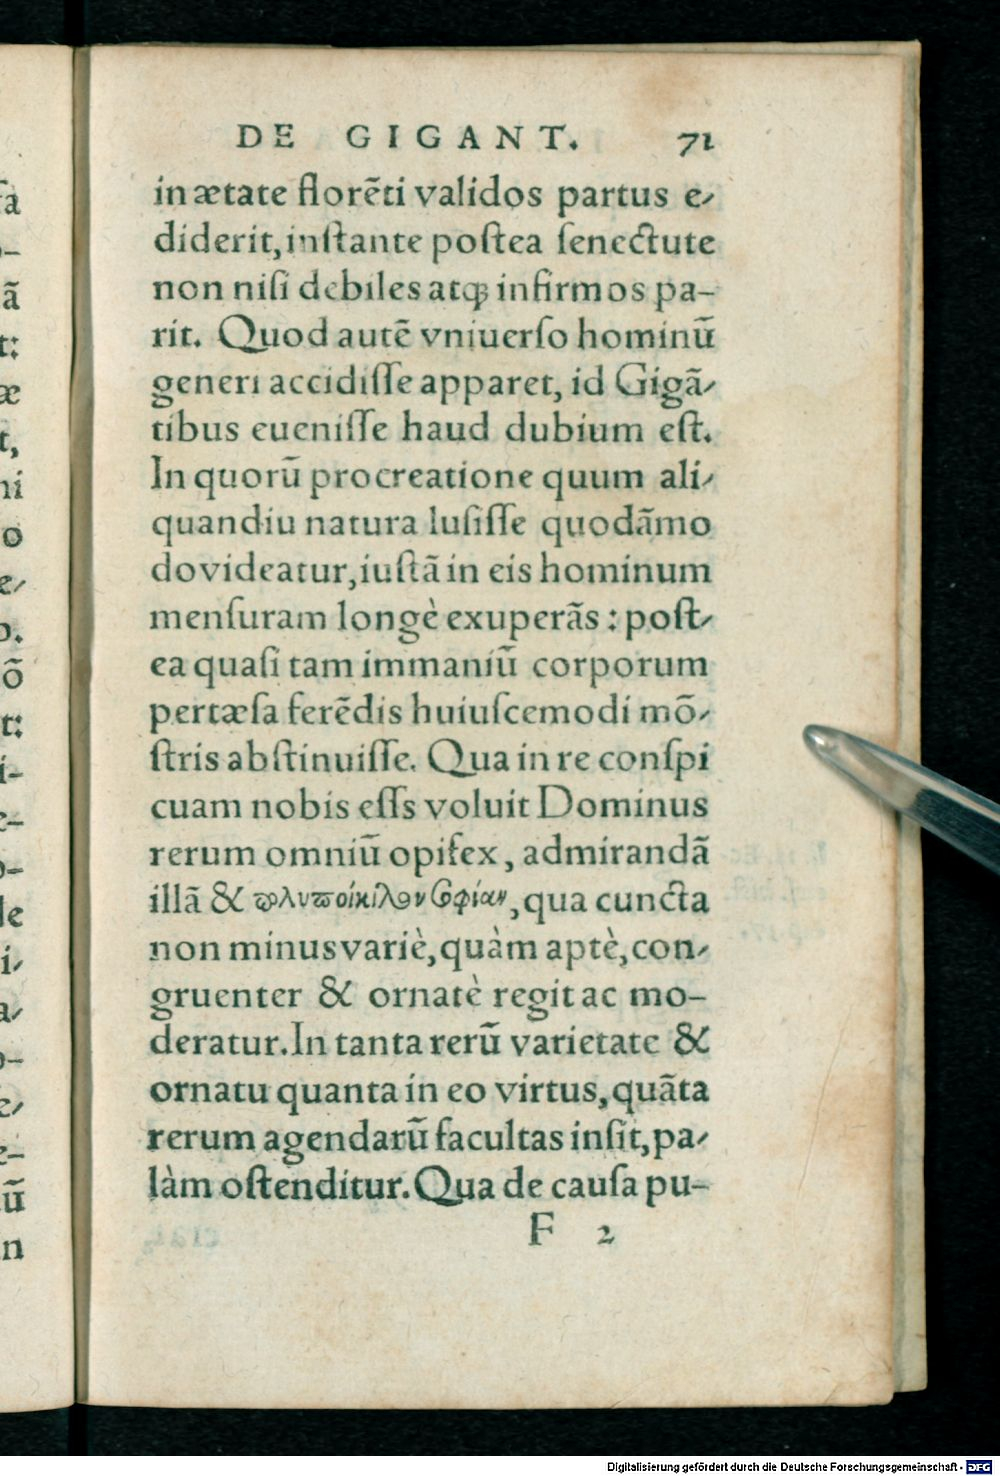 DE GIGANT. 71
in ætate florẽti validos partus e-
diderit, instante postea senectute
non nisi debiles atq; infirmos pa-
rit. Quod autẽ vniuerso hominũ
generi accidisse apparet, id Gigã-
tibus euenisse haud dubium est.
In quorũ procreatione quum ali-
quandiu natura lusisse quodãmo
do videatur, iustã in eis hominum
mensuram longè exuperãs : post-
ea quasi tam immaniũ corporum
pertæsa ferẽdis huiuscemodi mõ-
stris abstinuisse. Qua in re conspi
cuam nobis esss voluit Dominus
rerum omniũ opifex, admirandã
illã & πολυποίκιλον σοφίαν, qua cuncta
non minus variè, quàm aptè, con-
gruenter & ornatè regit ac mo-
deratur. In tanta rerũ varietate &
ornatu quanta in eo virtus, quãta
rerum agendarũ facultas insit, pa-
làm ostenditur. Qua de causa pu-
F 2
Digitalisierung gefördert durch die Deutsche Forschungsgemeinschaft - DFG